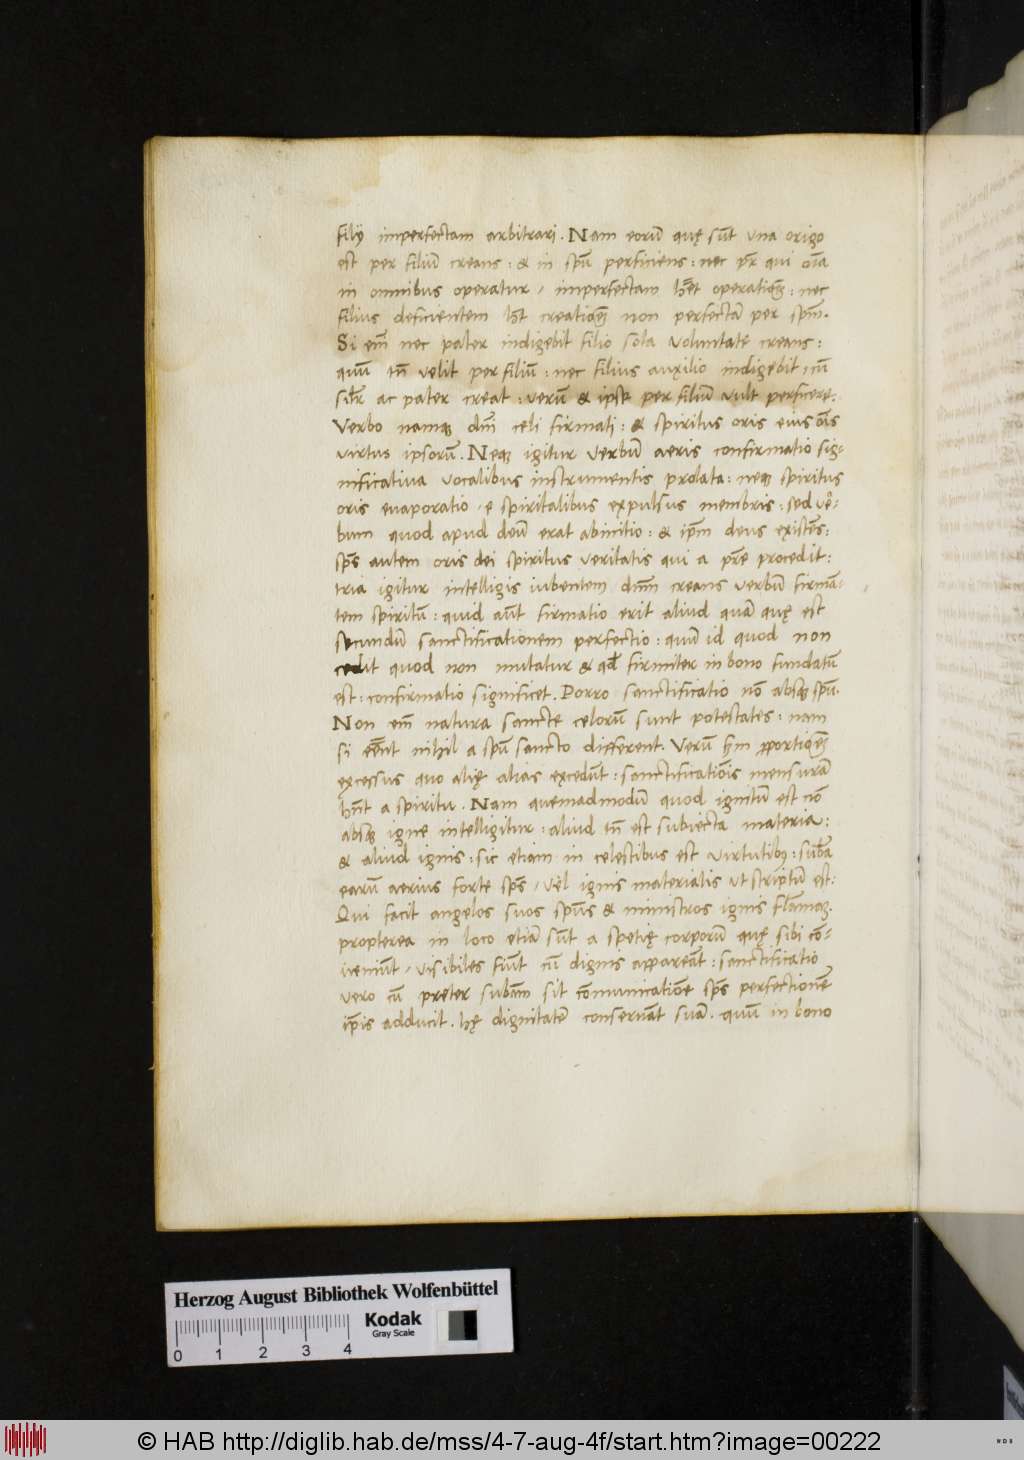 filij imperfectam arbitrari. Nam eorũ quę sũt una origo
est per filiũ creans: & in spũ perficiens: nec pr̃ qui oĩa
in omnibus operatur, imperfectam hẽt operatioẽ: nec
filius deficientem hẽt creatioẽ non perfectã per spm̃.
Si em̃ nec pater indigebit filio sola voluntate creans:
quũ tñ velit per filiũ: nec filius auxilio indigebit cũ
silr̃ ac pater creat: verũ & ipse per filiũ vult perficere:
Verbo namq; dm̃ celi firmati: & spiritus oris eius oĩs
virtus ipsorũ. Neq; igitur verbũ aeris confirmatio sig-
nificativa vocalibus instrumentis prolata: neq; spiritus
oris evaporatio, e spiritalibus expulsus membris: sed ver-
bum quod apud deũ erat ab initio: & ipm̃ deus existẽs:
sps̃ autem oris dei spiritus veritatis qui a pr̃e procedit:
tria igitur intelligis iubentem dnm̃ creans verbũ firmã-
tem spiritũ: quid aũt firmatio erit aliud quã quę est
secundũ sanctificationem perfectio: quũ id quod non
cedit quod non mutatur & qđ firmiter in bono fundatũ
est: confirmatio significet. Porro sanctificatio nõ absq; spũ.
Non em̃ natura sancte celorũ sunt potestates: nam
si eẽnt nihil a spũ sancto different. Verũ sm̃ proportioẽ
excessus quo alię alias excedũt: sanctificatiõis mensurã
hñt a spiritu. Nam quemadmodũ quod ignitũ est nõ
absq; igne intelligitur: aliud tñ est subiecta materia:
& aliud ignis: sic etiam in celestibus est virtutib;: subãa
earũ aerius forte sps̃, vel ignis materialis ut scriptũ est:
Qui facit angelos suos spũs & ministros ignis flãmaȝ.
propterea in loco etiã sũt a spetię corporũ quę sibi cõ-
veniũt, visibiles fiũt cũ dignis appareãt: sanctificatio
vero cũ preter subãm sit cõmunicatiõe sps̃ perfectionẽ
ip̃is adducit. hę dignitatẽ conservãt suã. quũ in bono
Herzog August Bibliothek Wolfenbüttel
Kodak
Gray Scale
0 1 2 3 4
© HAB http://diglib.hab.de/mss/4-7-aug-4f/start.htm?image=00222